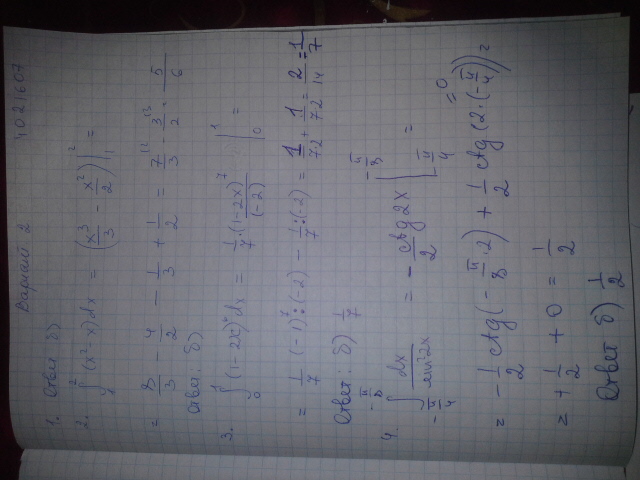 Вариант 2 4021607
1. Ответ б)
2. ∫₁² (x² - x) dx = (x³/3 - x²/2) |₁² =
= 8/3 - 4/2 - 1/3 + 1/2 = 7/3 - 3/2 = 5/6
Ответ: б)
3. ∫₀¹ (1-2x)⁶ dx = 1/7 · (1-2x)⁷/(-2) |₀¹ =
= 1/7 (-1)⁷:(-2) - 1/7:(-2) = 1/7·2 + 1/7·2 = 2/14 = 1/7
Ответ: б) 1/7
4. ∫ dx/sin²2x = - ctg2x/2 | =
= -1/2 ctg(-π/8·2) + 1/2 ctg(2·(-π/4)) =
= +1/2 + 0 = 1/2
Ответ б) 1/2